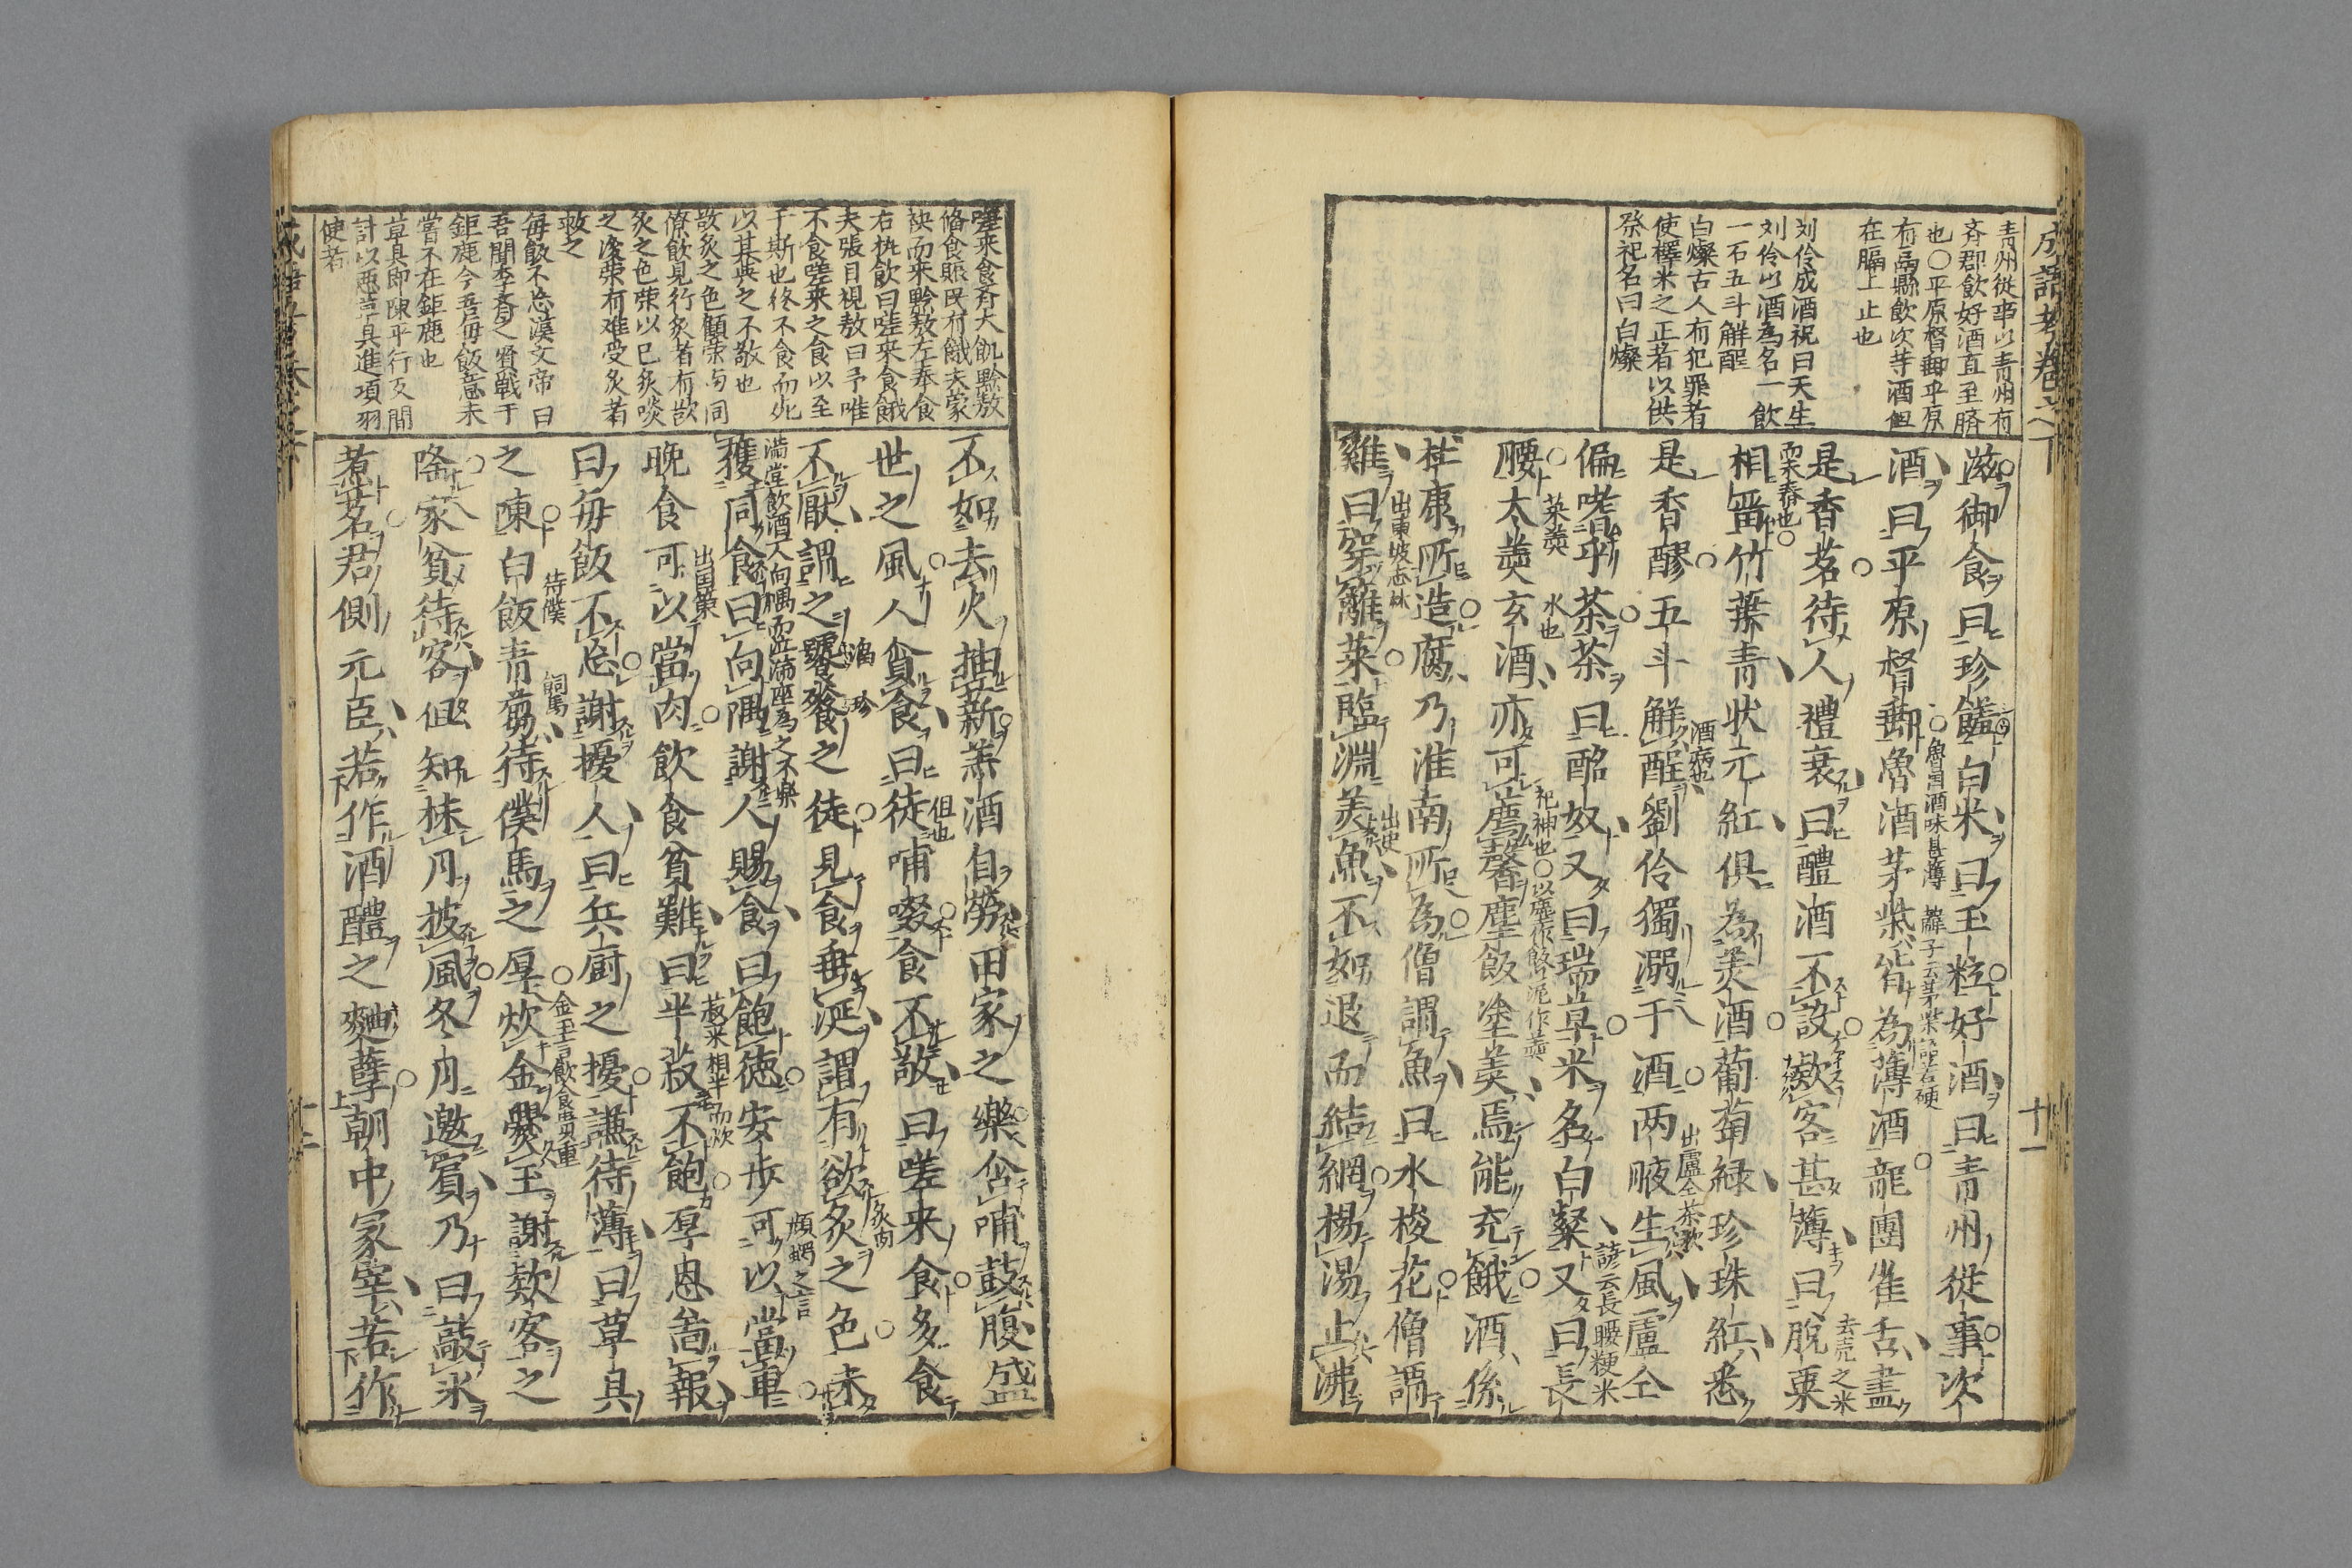 成語考卷之下
十一
青州從事以青州有
齊郡飲好酒直至臍
也○平原督郵平原
有鬲縣飲次等酒但
在膈上止也
刘伶成酒祝曰天生
刘伶以酒為名一飲
一石五斗解酲
白燦古人有犯罪者
使檡米之正者以供
祭祀名曰白燦
滋御食曰珍饈白米曰玉粒好酒曰青州從事次
魯国酒味甚薄
酒曰平原督郵魯酒茅柴皆為薄酒龍團雀舌盡
是香茗待人禮衰曰醴酒不設欵客甚薄曰脫粟
去壳之米
相畱竹葉青狀元紅俱為美酒葡萄緑珍珠紅悉
酒病也
出盧仝茶歌
是香醪五斗解酲劉伶獨溺于酒两腋生風盧仝
諺云長腰粳米
偏嗜乎茶茶曰酩奴又曰瑞草米名白粲又曰長
菜羮
水也
祀神也○以塵作飯泥作羮
腰太羮玄酒亦可薦馨塵飯塗羮焉能充餓酒係
杜康所造腐乃淮南所為僧謂魚曰水梭花僧謂
出東坡志林
雞曰穿籬菜臨淵羨魚不如退而結網揚湯止沸
嗟来食斉大飢黔敖
俻食賑民有餓夫蒙
袂而来黔敖左奉食
右执飲曰嗟来食餓
夫張目視敖曰予唯
不食嗟来之食以至
于斯也终不食而死
以其與之不敬也
欲炙之色顧荣与同
僚飲見行炙者有欲
炙之色荣以己炙啖
之後荣有难受炙者
救之
毎飯不忘漢文帝曰
吾聞李斉之賢戰于
鉅鹿今吾毎飯意未
嘗不在鉅鹿也
草具即陳平行反間
計以悪草具進項羽
使者
不如去火抽薪羔酒自勞田家之樂含哺鼓腹盛
但也
世之風人貪食曰徒哺啜食不敬曰嗟来食多食
炙肉
不厭謂之饕餮之徒見食垂涎謂有欲炙之色未
满堂飲酒一人向隅而泣满座為之不樂
獲同食曰向隅謝人賜食曰飽徳安步可以當車
出国策
晚食可以當肉飲食貧難曰半菽不飽厚恩啚報
曰毎飯不忘謝擾人曰兵厨之擾謙待薄曰草具
待僕
飼馬
之陳白飯青芻待僕馬之厚炊金爨玉謝欵客之
隆家貧待客但知抹月披風冬月邀賓乃曰敲氷
煮茗君側元臣若作酒醴之麯蘖朝中冢宰若作